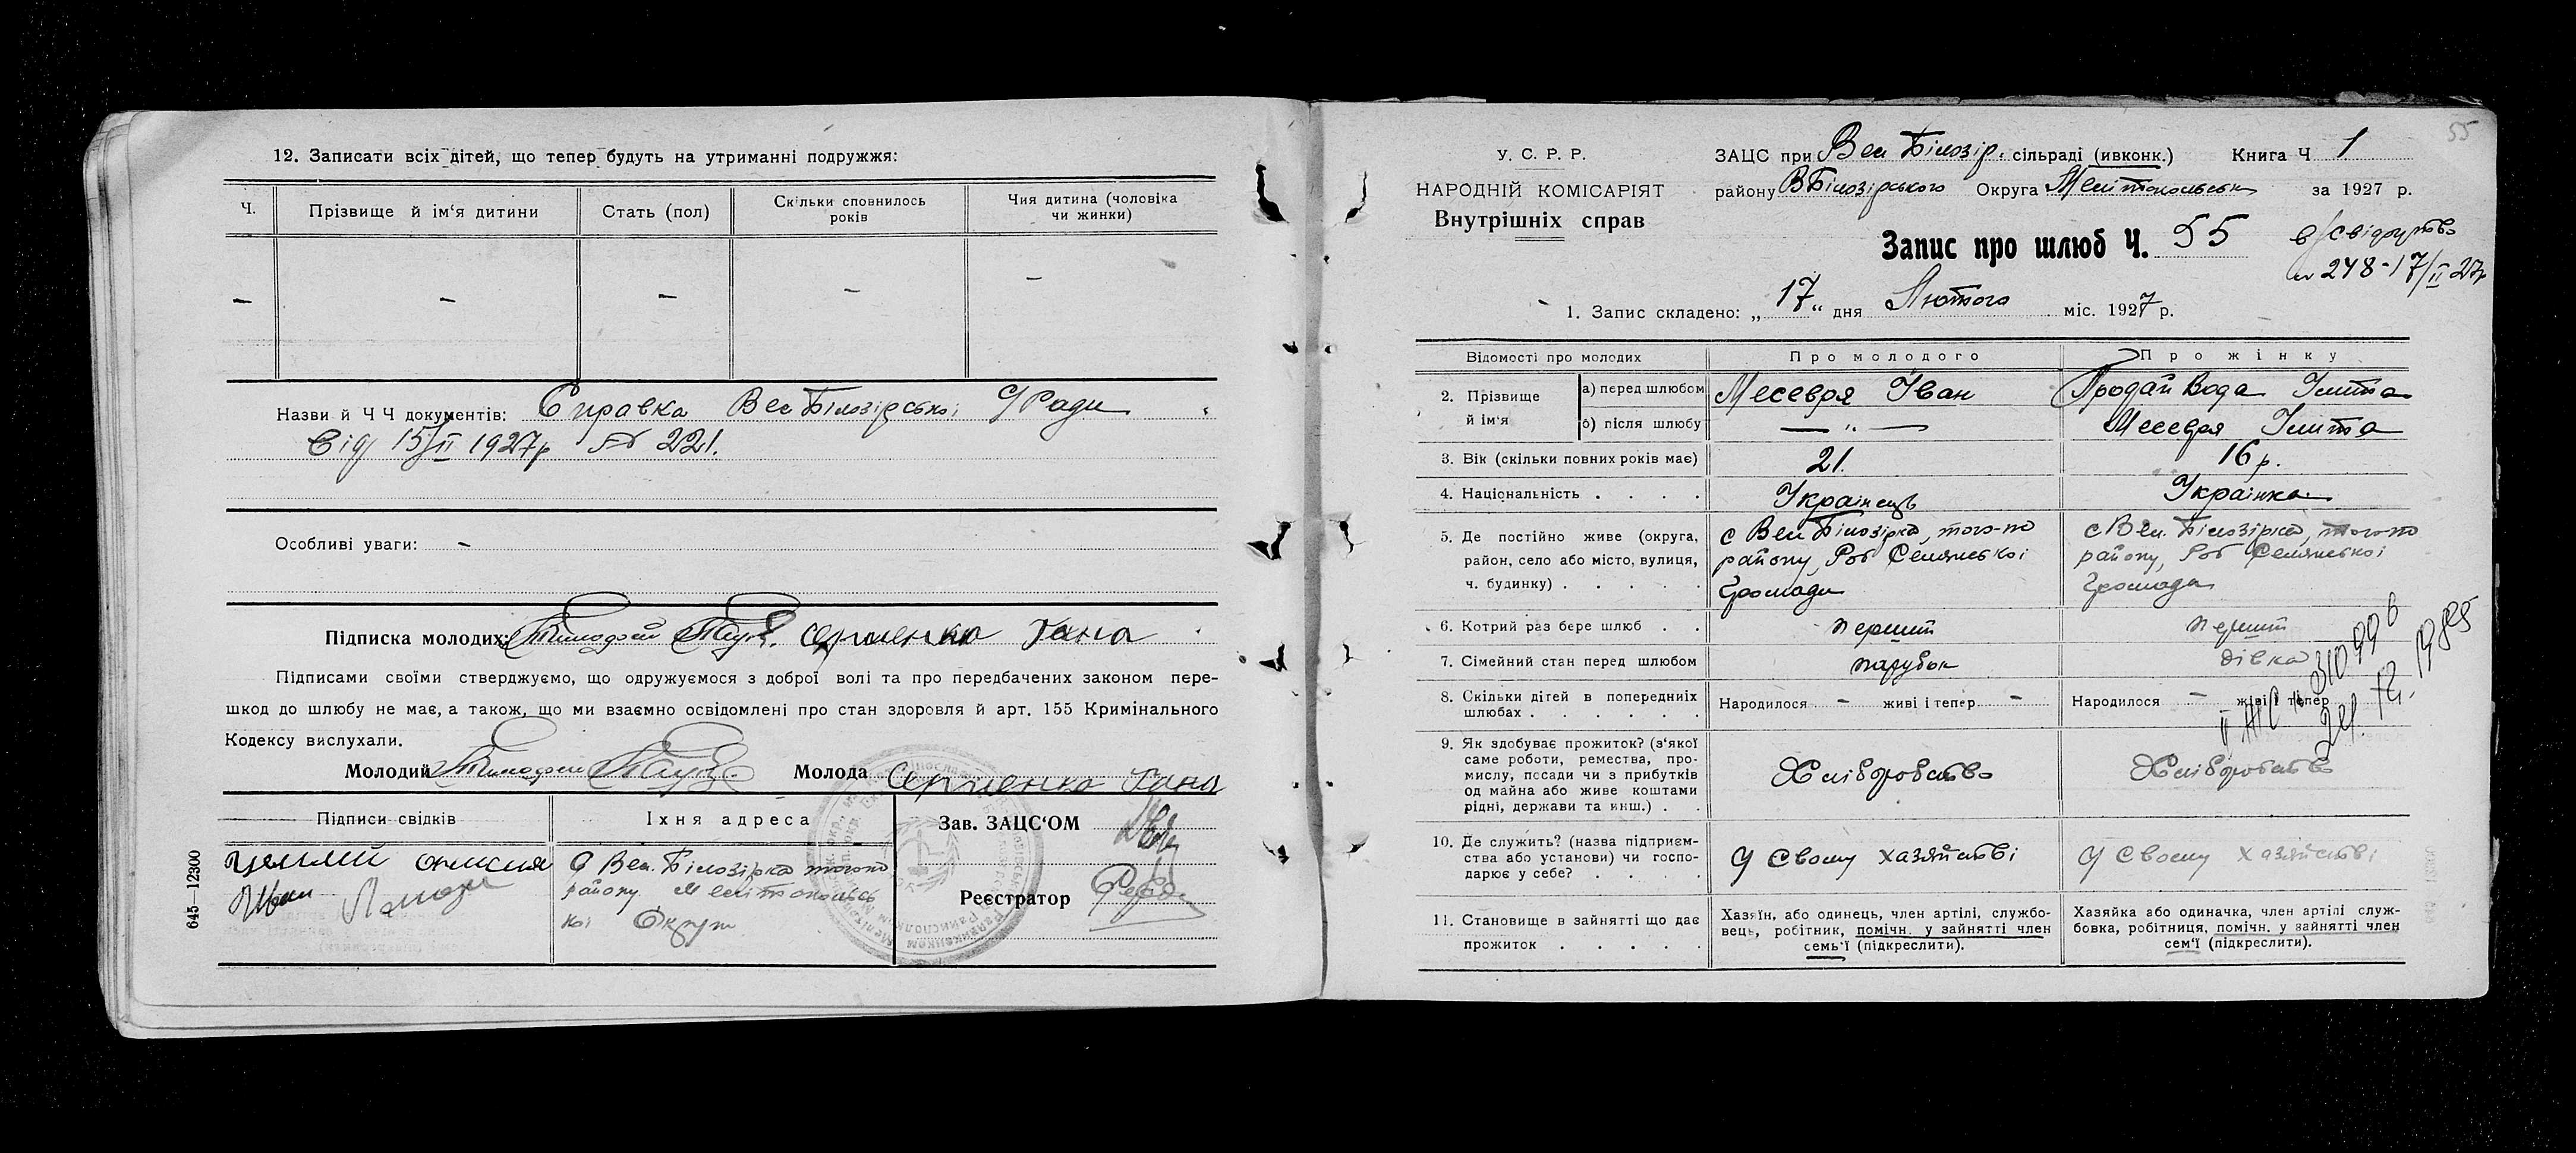 12. Записати всіх дітей, що тепер будуть на утриманні подружжя:
Ч. Прізвище й ім'я дитини Стать (пол) Скільки сповнилось років Чия дитина (чоловіка чи жинки)
— — — — —
Назви й Ч Ч документів: Справка Вел Білозірської С/Ради
Від 15/II 1927р № 221.
Особливі уваги: —
Підписка молодих: Сергиенко Гана
Підписами своїми стверджуємо, що одружуємося з доброї волі та про передбачених законом пере-
шкод до шлюбу не має, а також, що ми взаємно освідомлені про стан здоровля й арт. 155 Кримінального
Кодексу вислухали.
Молодий Молода Сергиенко Гана
Підписи свідків Їхня адреса Зав. ЗАЦС'ОМ
С Вел. Білозірка того-по
району Мелітопольсь
кої Округи
Иван
Реєстратор
645—12300
55
У. С. Р. Р.
НАРОДНІЙ КОМІСАРІЯТ
Внутрішніх справ
ЗАЦС при Вел Білозір. сільраді (ивконк.) Книга Ч 1
району ВБілозірського Округа Мелітопольськ за 1927 р.
Запис про шлюб Ч. 55
в/свідоцтво
№ 248-17/II 27р
1. Запис складено: „17“ дня Лютого міс. 1927 р.
Відомості про молодих Про молодого Про жінку
2. Прізвище й ім'я
а) перед шлюбом Месевря Іван Продай Вода Улита
б) після шлюбу — „ — Месевря Улита
3. Вік (скільки повних років має) 21. 16 р.
4. Національність . . . . Українець Українка
5. Де постійно живе (округа, район, село або місто, вулиця, ч. будинку) . . . . .
с Вел Білозірка, того-по
району, Роб Селянської
Громади
с Вел. Білозірка, того-по
району, Роб Селянської
Громади
6. Котрий раз бере шлюб . перший перший
7. Сімейний стан перед шлюбом парубок дівка
8. Скільки дітей в попередніх шлюбах . . . . . .
Народилося — живі і тепер —
Народилося — живі і тепер
II ЖС № 310996
12. 1985
9. Як здобуває прожиток? (з'якої
саме роботи, ремества, про-
мислу, посади чи з прибутків
од майна або живе коштами
рідні, держави та инш.) . .
Хліборобство Хліборобство
10. Де служить? (назва підприєм-
ства або установи) чи госпо-
дарює у себе? . . . .
У своєму хазяйстві У своєму хазяйстві
11. Становище в зайнятті що дає
прожиток . . . . .
Хазяїн, або одинець, член артілі, службо-
вець, робітник, помічн. у зайнятті член
семь'ї (підкреслити).
Хазяйка або одиначка, член артілі служ-
бовка, робітниця, помічн. у зайнятті член
сем'ї (підкреслити).